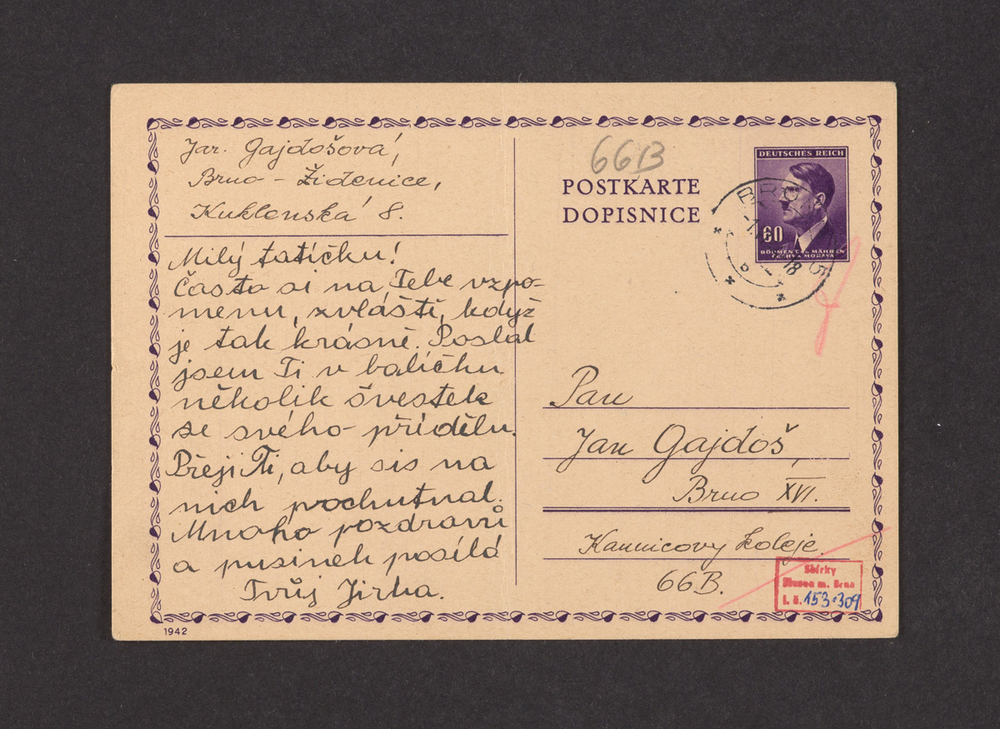 Jar. Gajdošová,
Brno - Židenice,
Kuklenská 8.
Milý tatíčku!
Často si na Tebe vzpo-
menu, zvláště, když
je tak krásně. Poslal
jsem Ti v balíčku
několik švestek
ze svého přídělu.
Přeji Ti, aby sis na
nich pochutnal.
Mnoho pozdravů
a pusinek posílá
Tvůj Jirka.
1942
66B
POSTKARTE
DOPISNICE
DEUTSCHES REICH
60
BÖHMEN U. MÄHREN
ČECHY A MORAVA
18
Pan
Jan Gajdoš,
Brno XVI.
Kaunicovy koleje.
66B.
Sbírky
Musea m. Brna
I. č. 153.309